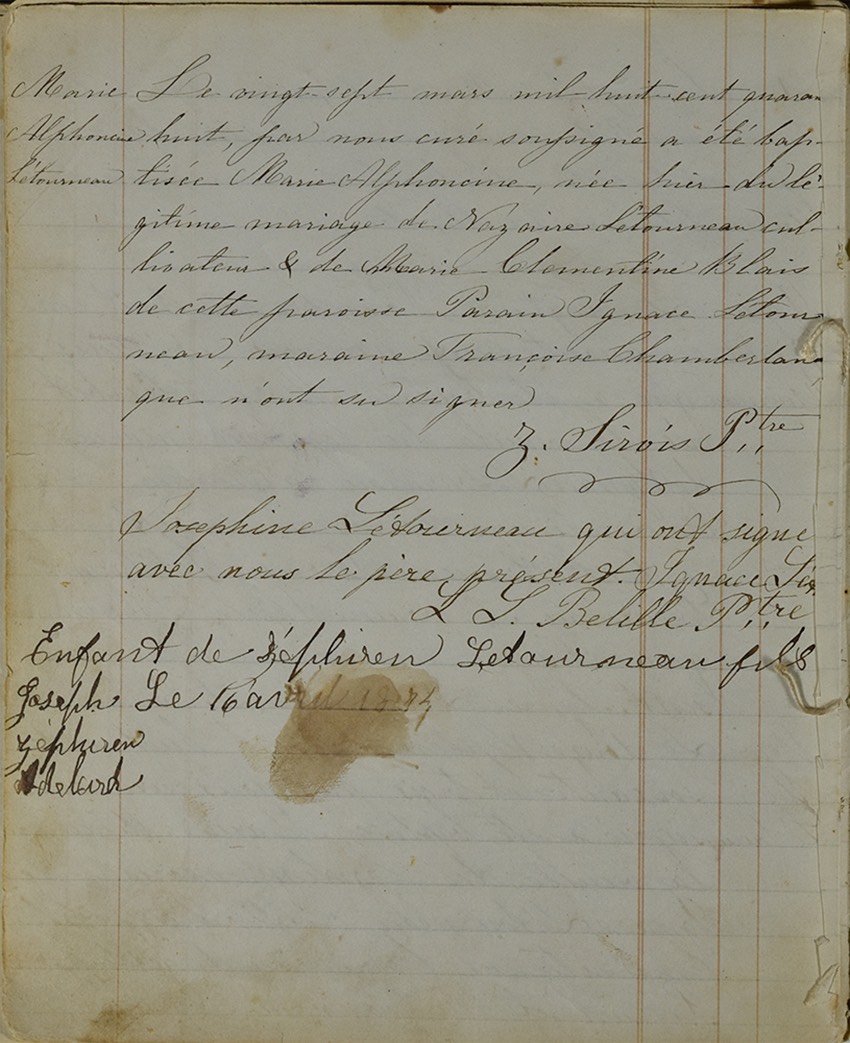 Marie Le vingt-sept mars mil huit cent quaran
Alphoncine huit, par nous curé soussigné a été bap-
Létourneau tisée Marie Alphoncine, née hier du lé-
gitime mariage de Nazaire Létourneau cul-
tivateur & de Marie Clementine Blais
de cette paroisse Parain Ignace Létour
neau, maraine Françoise Chamberlan
que n'ont su signer
Z. Sirois Ptre
Josephine Létourneau qui ont signe
avec nous le père présent. Ignace Lét.
L L. Belille Ptre
Enfant de Zéphiren Letourneau fils
Joseph Le 16 avril
Zéphiren
Adelard